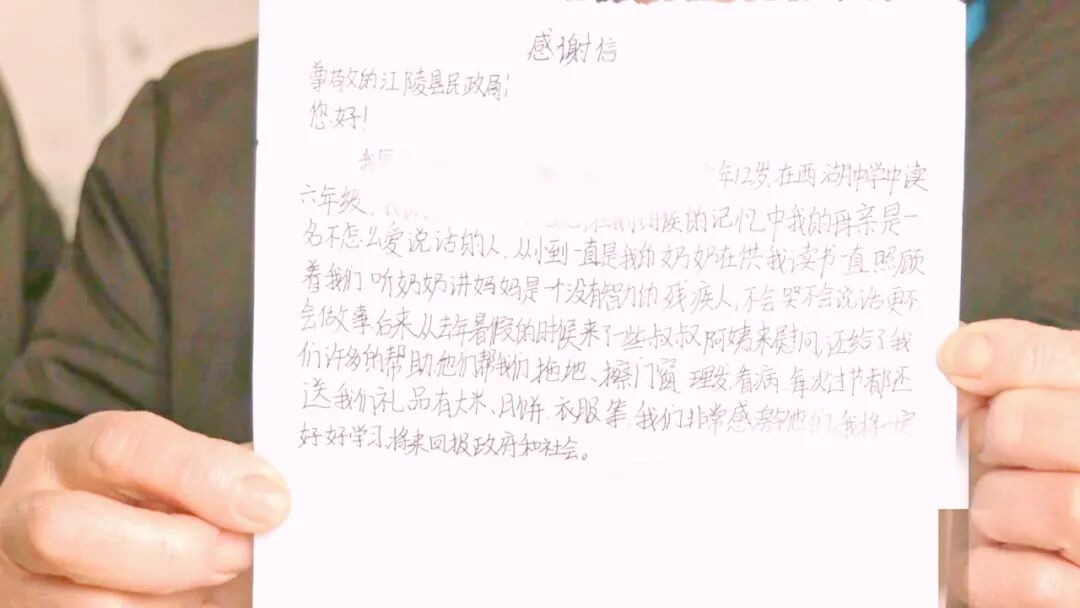 感谢信
尊敬的江陵县民政局:
您好!
我 年12岁.在西湖中学中读
六年级, 时候的记忆中我的母亲是一
名不怎么爱说话的人.从小到一直是我的奶奶在供我读书一直照顾
着我们听奶奶讲妈妈是一个没有智力的残疾人,不会哭不会说话更不
会做事后来从去年暑假的时候来了一些叔叔阿姨来慰问,还给了我
们许多的帮助他们帮我们拖地、擦门窗理发看病.每次过节都还
送我们礼品有大米、月饼、衣服等.我们非常感谢他们,我将一定
好好学习将来回报政府和社会。